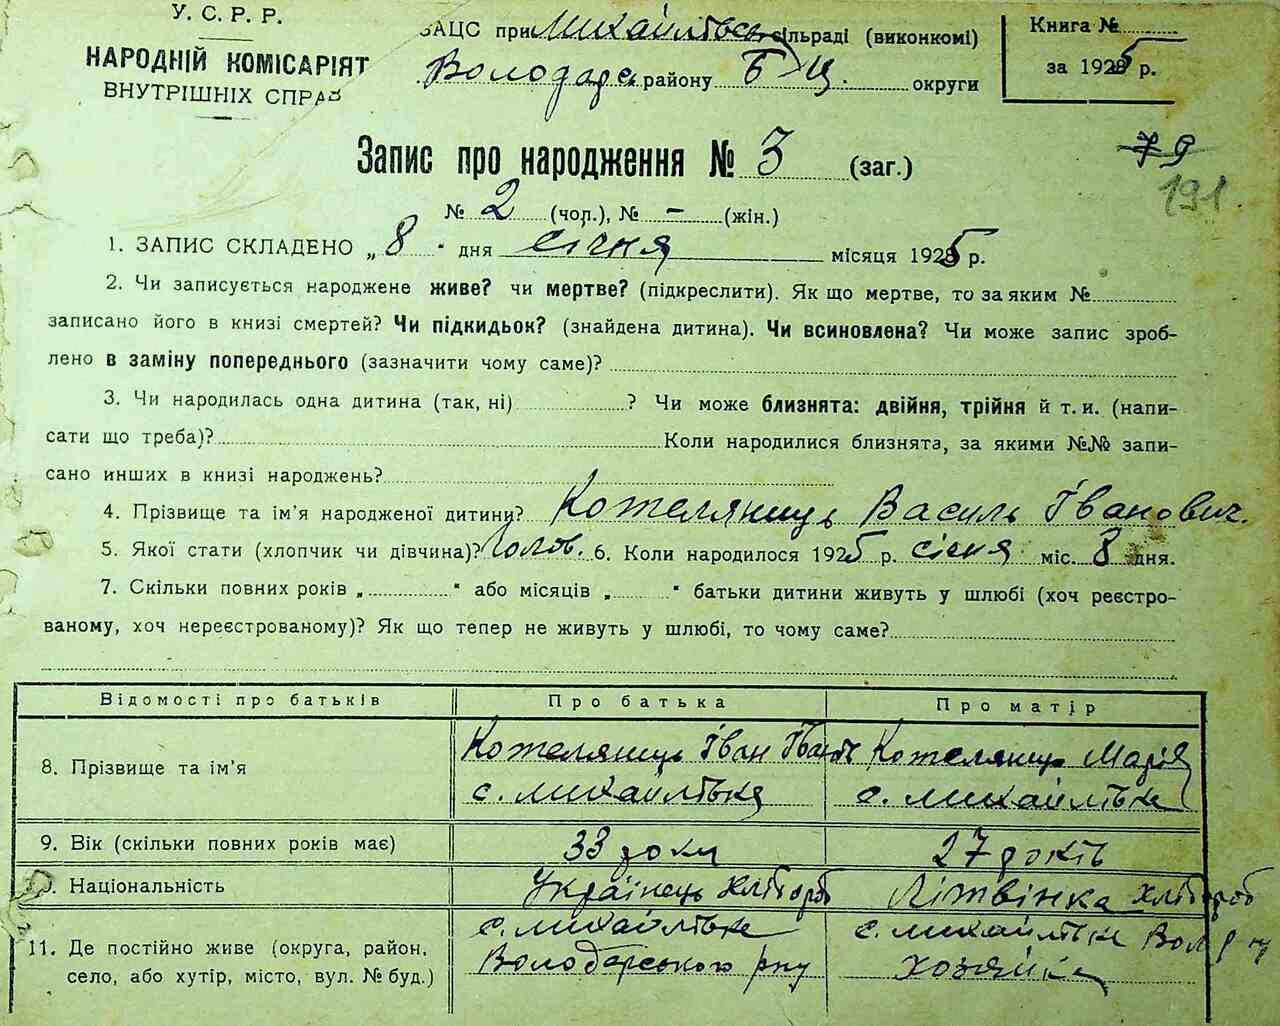 У. С. Р. Р.
НАРОДНІЙ КОМІСАРІЯТ
ВНУТРІШНІХ СПРАВ
ЗАЦС при Михайлівськ сільраді (виконкомі)
Володарс району Б-Ц. округи
Книга №
за 1925 р.
Запис про народження № 3 (заг.)
79
191
№ 2 (чол.), № - (жін.)
1. ЗАПИС СКЛАДЕНО „8" дня січня місяця 1925 р.
2. Чи записується народжене живе? чи мертве? (підкреслити). Як що мертве, то за яким №
записано його в книзі смертей? Чи підкидьок? (знайдена дитина). Чи всиновлена? Чи може запис зроб-
лено в заміну попереднього (зазначити чому саме)?
3. Чи народилась одна дитина (так, ні) ? Чи може близнята: двійня, трійня й т. и. (напи-
сати що треба)? Коли народилися близнята, за якими №№ запи-
сано инших в книзі народжень?
4. Прізвище та ім'я народженої дитини? Котелянець Василь Іванович.
5. Якої стати (хлопчик чи дівчина)? Чолов. 6. Коли народилося 1925 р. січня міс. 8 дня.
7. Скільки повних років „ " або місяців „ " батьки дитини живуть у шлюбі (хоч реєстро-
ваному, хоч нереєстрованому)? Як що тепер не живуть у шлюбі, то чому саме?
Відомості про батьків Про батька Про матір
8. Прізвище та ім'я
Котелянець Іван Іванович Котелянець Марія
с. Михайлівка с. Михайлівка
9. Вік (скільки повних років має) 33 роки 27 років
10. Національність Українець хлібороб Літвінка хлібороб
11. Де постійно живе (округа, район,
село, або хутір, місто, вул. № буд.)
с. Михайлівка с. Михайлівка Вол р ну
Володарського р ну хозяйка